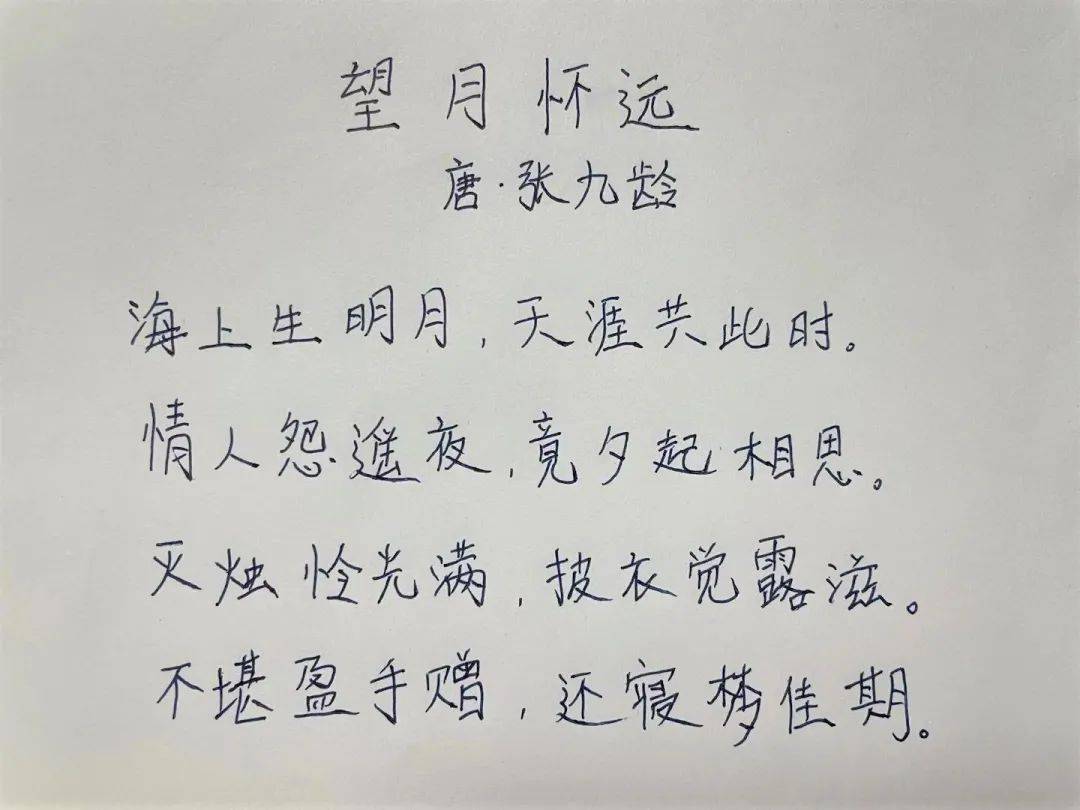 望月怀远
唐·张九龄
海上生明月,天涯共此时。
情人怨遥夜,竟夕起相思。
灭烛怜光满,披衣觉露滋。
不堪盈手赠,还寝梦佳期。